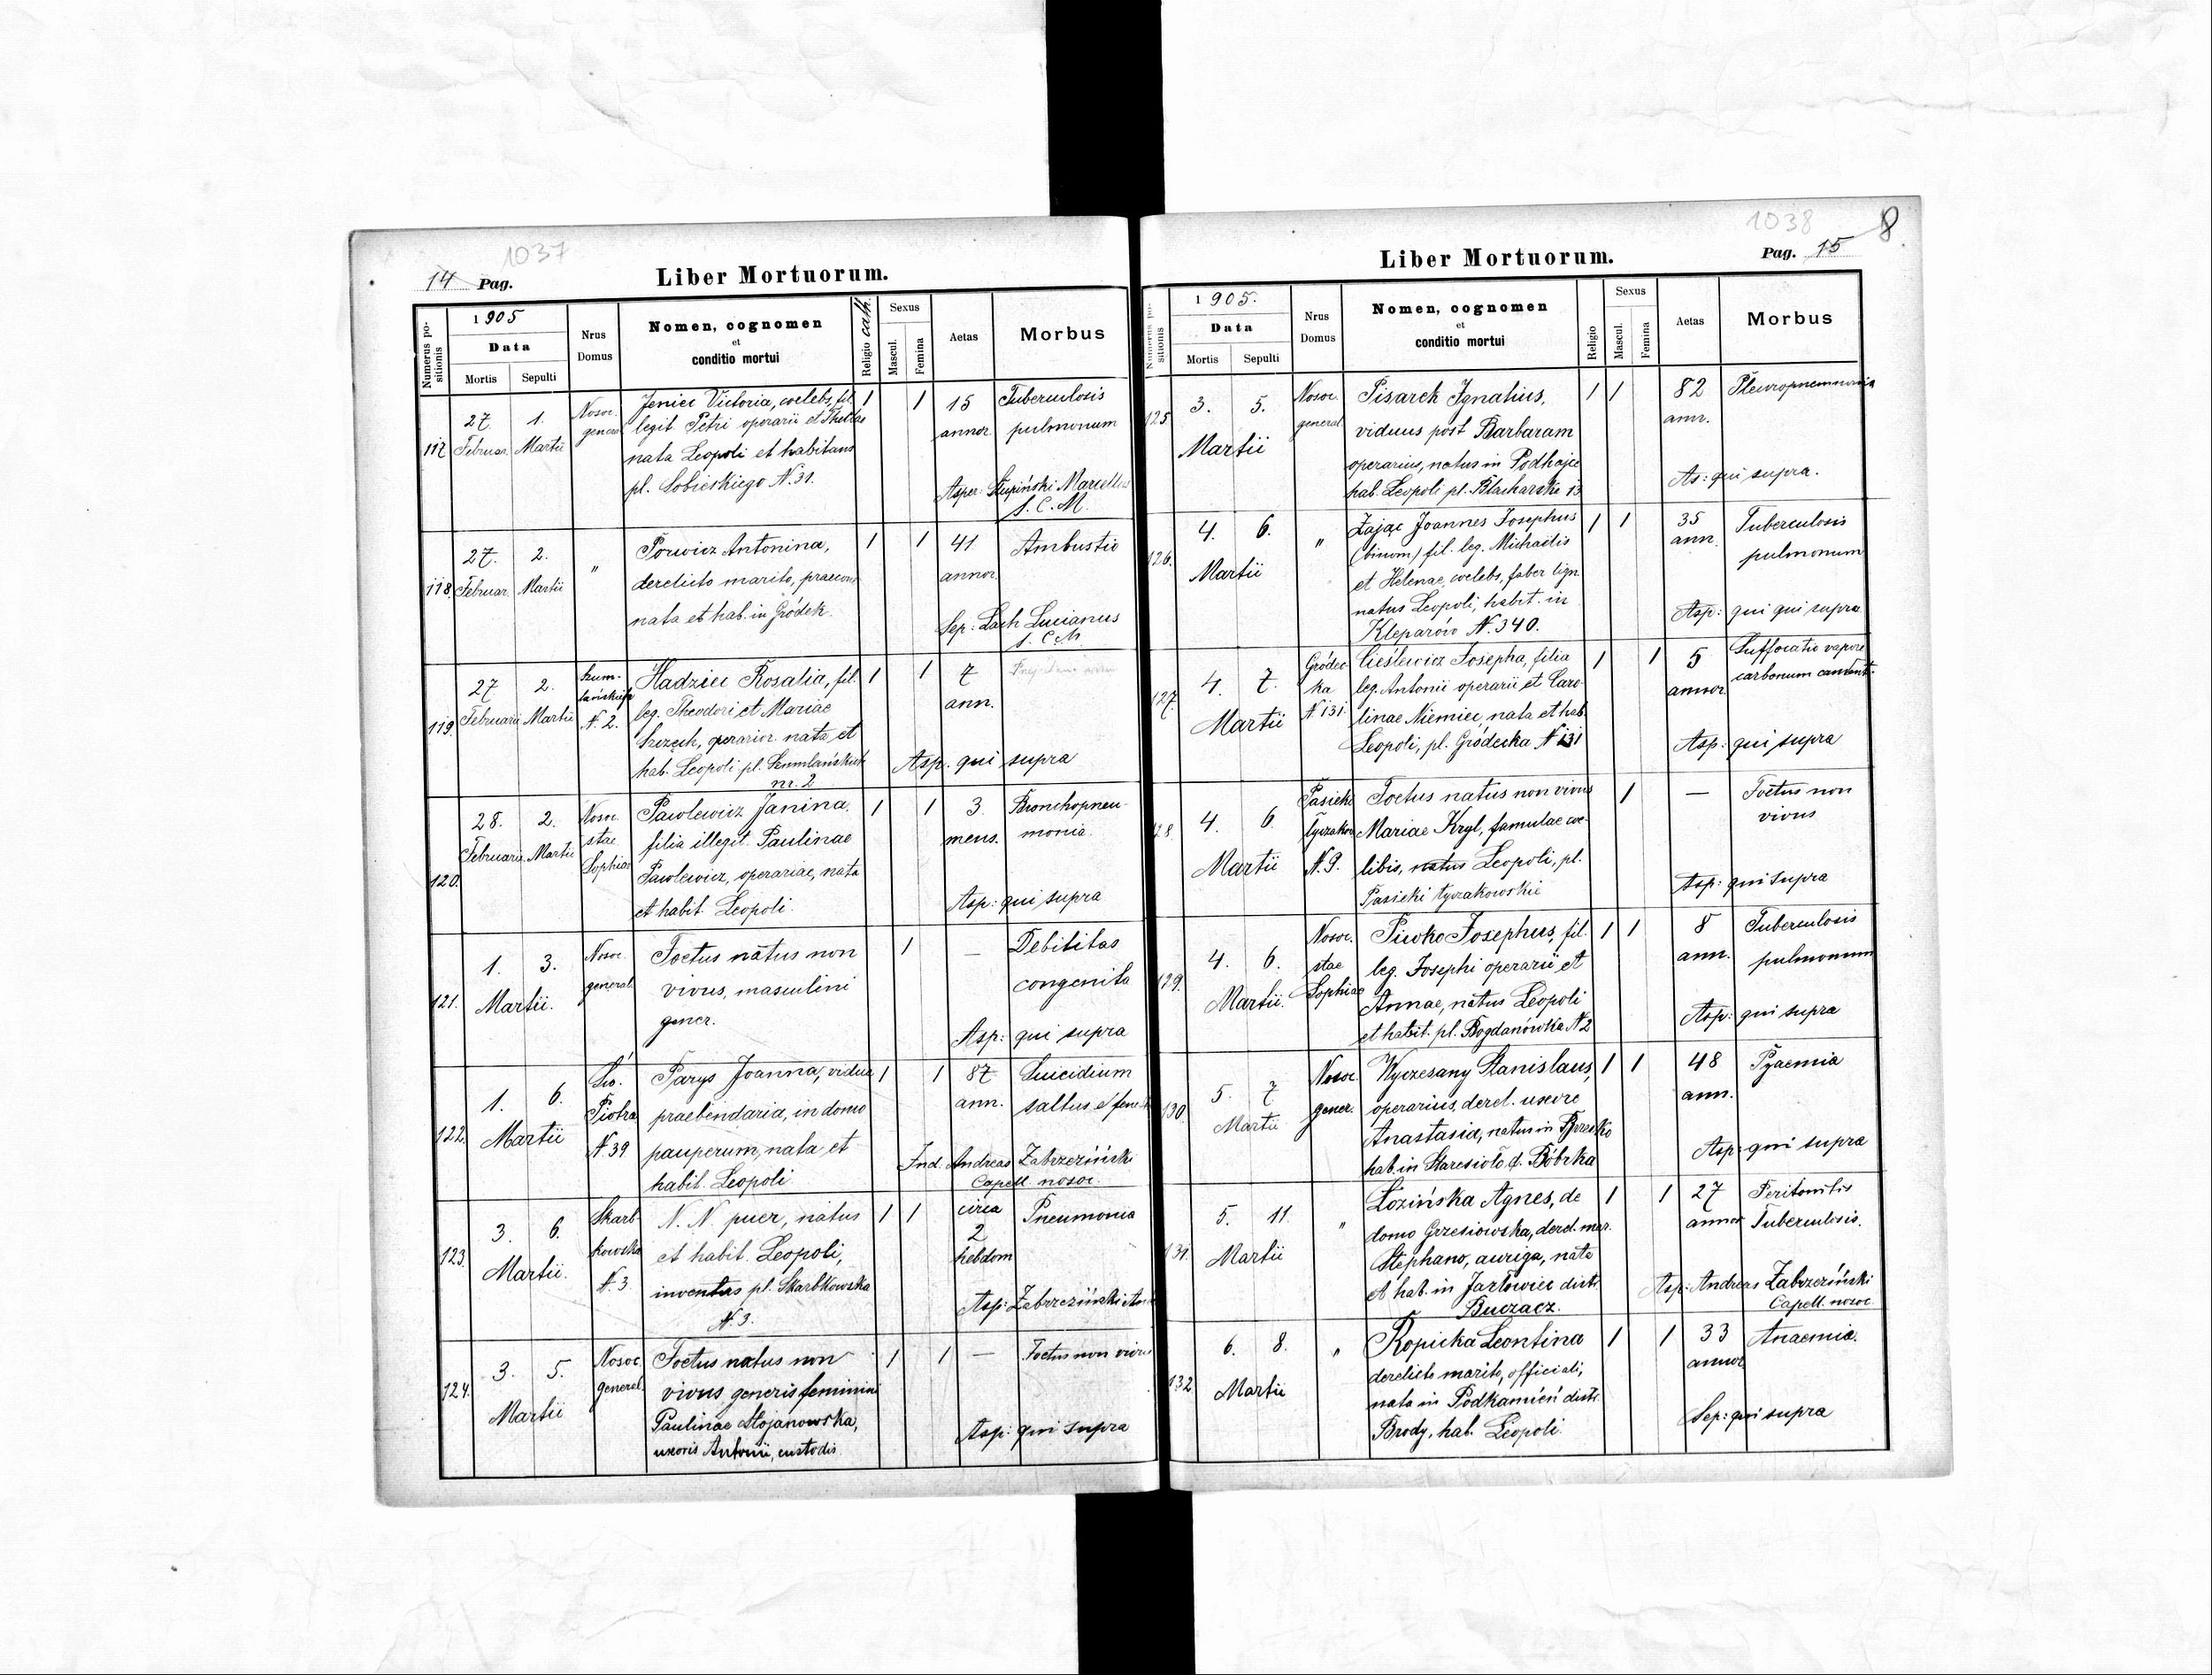 1037
14 Pag.
Liber Mortuorum.
Numerus positionis
1905
Data
Mortis
Sepulti
Nrus Domus
Nomen, cognomen
et
conditio mortui
Religio cath.
Sexus
Mascul.
Femina
Aetas
Morbus
117
27. Februar.
1. Martii
Nosoc. general
Jeniec Victoria, coelebs, fil.
legit. Petri operarii et Theclae
nata Leopoli et habitans
pl. Sobieskiego N. 31.
1
1
15 annor.
Tuberculosis
pulmonum
Asper: Słupiński Marcellus
S. C. M.
118.
27. Februar.
2. Martii
"
Porwicz Antonina,
derelicto marito, praecon
nata et hab. in Gródek.
1
1
41 annor.
Ambustio
Sep: Lach Lucianus
S. C. M.
119.
27 Februarii
2. Martii
Szumlańskich N. 2.
Hadziei Rosalia, fil.
leg. Theodori et Mariae
operarior. nata et
hab. Leopoli pl. Szumlańskich
nr. 2
1
1
7 ann.
Asp. qui supra
120.
28. Februarii
2. Martii
Nosoc. stae Sophiae
Pawlewicz Janina.
filia illegit. Paulinae
Pawlewicz, operariae, nata
et habit. Leopoli.
1
1
3 mens.
Bronchopneu-
monia.
Asp: qui supra
121.
1. 3.
Martii.
Nosoc. general.
Foetus natus non
vivus, masculini
gener.
1
—
Debilitas
congenita
Asp: qui supra
122.
1. 6.
Martii
Św. Piotra N. 39
Parys Joanna, vidua
praebendaria, in domo
pauperum, nata et
habit. Leopoli
1
1
87 ann.
Suicidium
saltus e fene
Ind. Andreas Zabrzeziński
Capell. nosoc.
123.
3. 6.
Martii.
Skarbkowska N. 3
N. N. puer, natus
et habit. Leopoli,
inventus pl. Skarbkowska
N. 3.
1
1
circa 2 hebdom
Pneumonia
Asp: Zabrzeziński And
124.
3. 5.
Martii
Nosoc. general.
Foetus natus non
vivus generis feminini
Paulinae Stojanowska,
uxoris Antonii, custodis.
1
1
—
Foetus non vivus
Asp: qui supra
1038
8
Liber Mortuorum.
Pag. 15
Numerus positionis
1905.
Data
Mortis
Sepulti
Nrus Domus
Nomen, cognomen
et
conditio mortui
Religio
Sexus
Mascul.
Femina
Aetas
Morbus
125
3. 5.
Martii
Nosoc. general
Pisarek Ignatius,
viduus post Barbaram
operarius, natus in Podhajce
hab. Leopoli pl. Blacharska 13
1
1
82 ann.
Pleuropneumonia
As: qui supra.
126.
4. 6.
Martii
"
Zając Joannes Josephus
(binom) fil. leg. Michaëlis
et Helenae, coelebs, faber lign.
natus Leopoli, habit. in
Kleparów N. 340.
1
1
35 ann.
Tuberculosis
pulmonum
Asp: qui qui supra.
127.
4. 7.
Martii
Gródecka N 131.
Cieślewicz Josepha, filia
leg. Antonii operarii et Caro-
linae Niemiec, nata et hab.
Leopoli, pl. Gródecka N 131
1
1
5 annor
Suffocatio vapore
carbonum candent.
Asp: qui supra
128.
4. 6
Martii
Pasieki Łyczakow. N. 9.
Foetus natus non vivus
Mariae Kryl, famulae coe-
libis, natus Leopoli, pl.
Pasieki Łyczakowskie
1
—
Foetus non
vivus
Asp: qui supra
129.
4. 6.
Martii.
Nosoc. stae Sophiae
Piwko Josephus, fil.
leg. Josephi operarii et
Annae, natus Leopoli
et habit. pl. Bogdanówka N 2
1
1
8 ann.
Tuberculosis
pulmonum
Asp: qui supra
130.
5. 7
Martii
Nosoc. gener.
Wyczesany Stanislaus,
operarius, derel. uxore
Anastasia, natus in Brzesko
hab. in Staresioło d. Bóbrka
1
1
48 ann.
Pyaemia
Asp: qui supra
131.
5. 11.
Martii
"
Łozińska Agnes, de
domo Grzesiowska, derel. mar.
Stephano, auriga, nata
et hab. in Jazłowiec distr.
Buczacz.
1
1
27 annor
Peritonitis
Tuberculosis.
Asp: Andreas Zabrzeziński
Capell. nosoc.
132.
6. 8.
Martii
"
Kopicka Leontina
derelicto marito, officiali,
nata in Podkamień distr.
Brody, hab. Leopoli.
1
1
33 annor
Anaemia.
Sep: qui supra